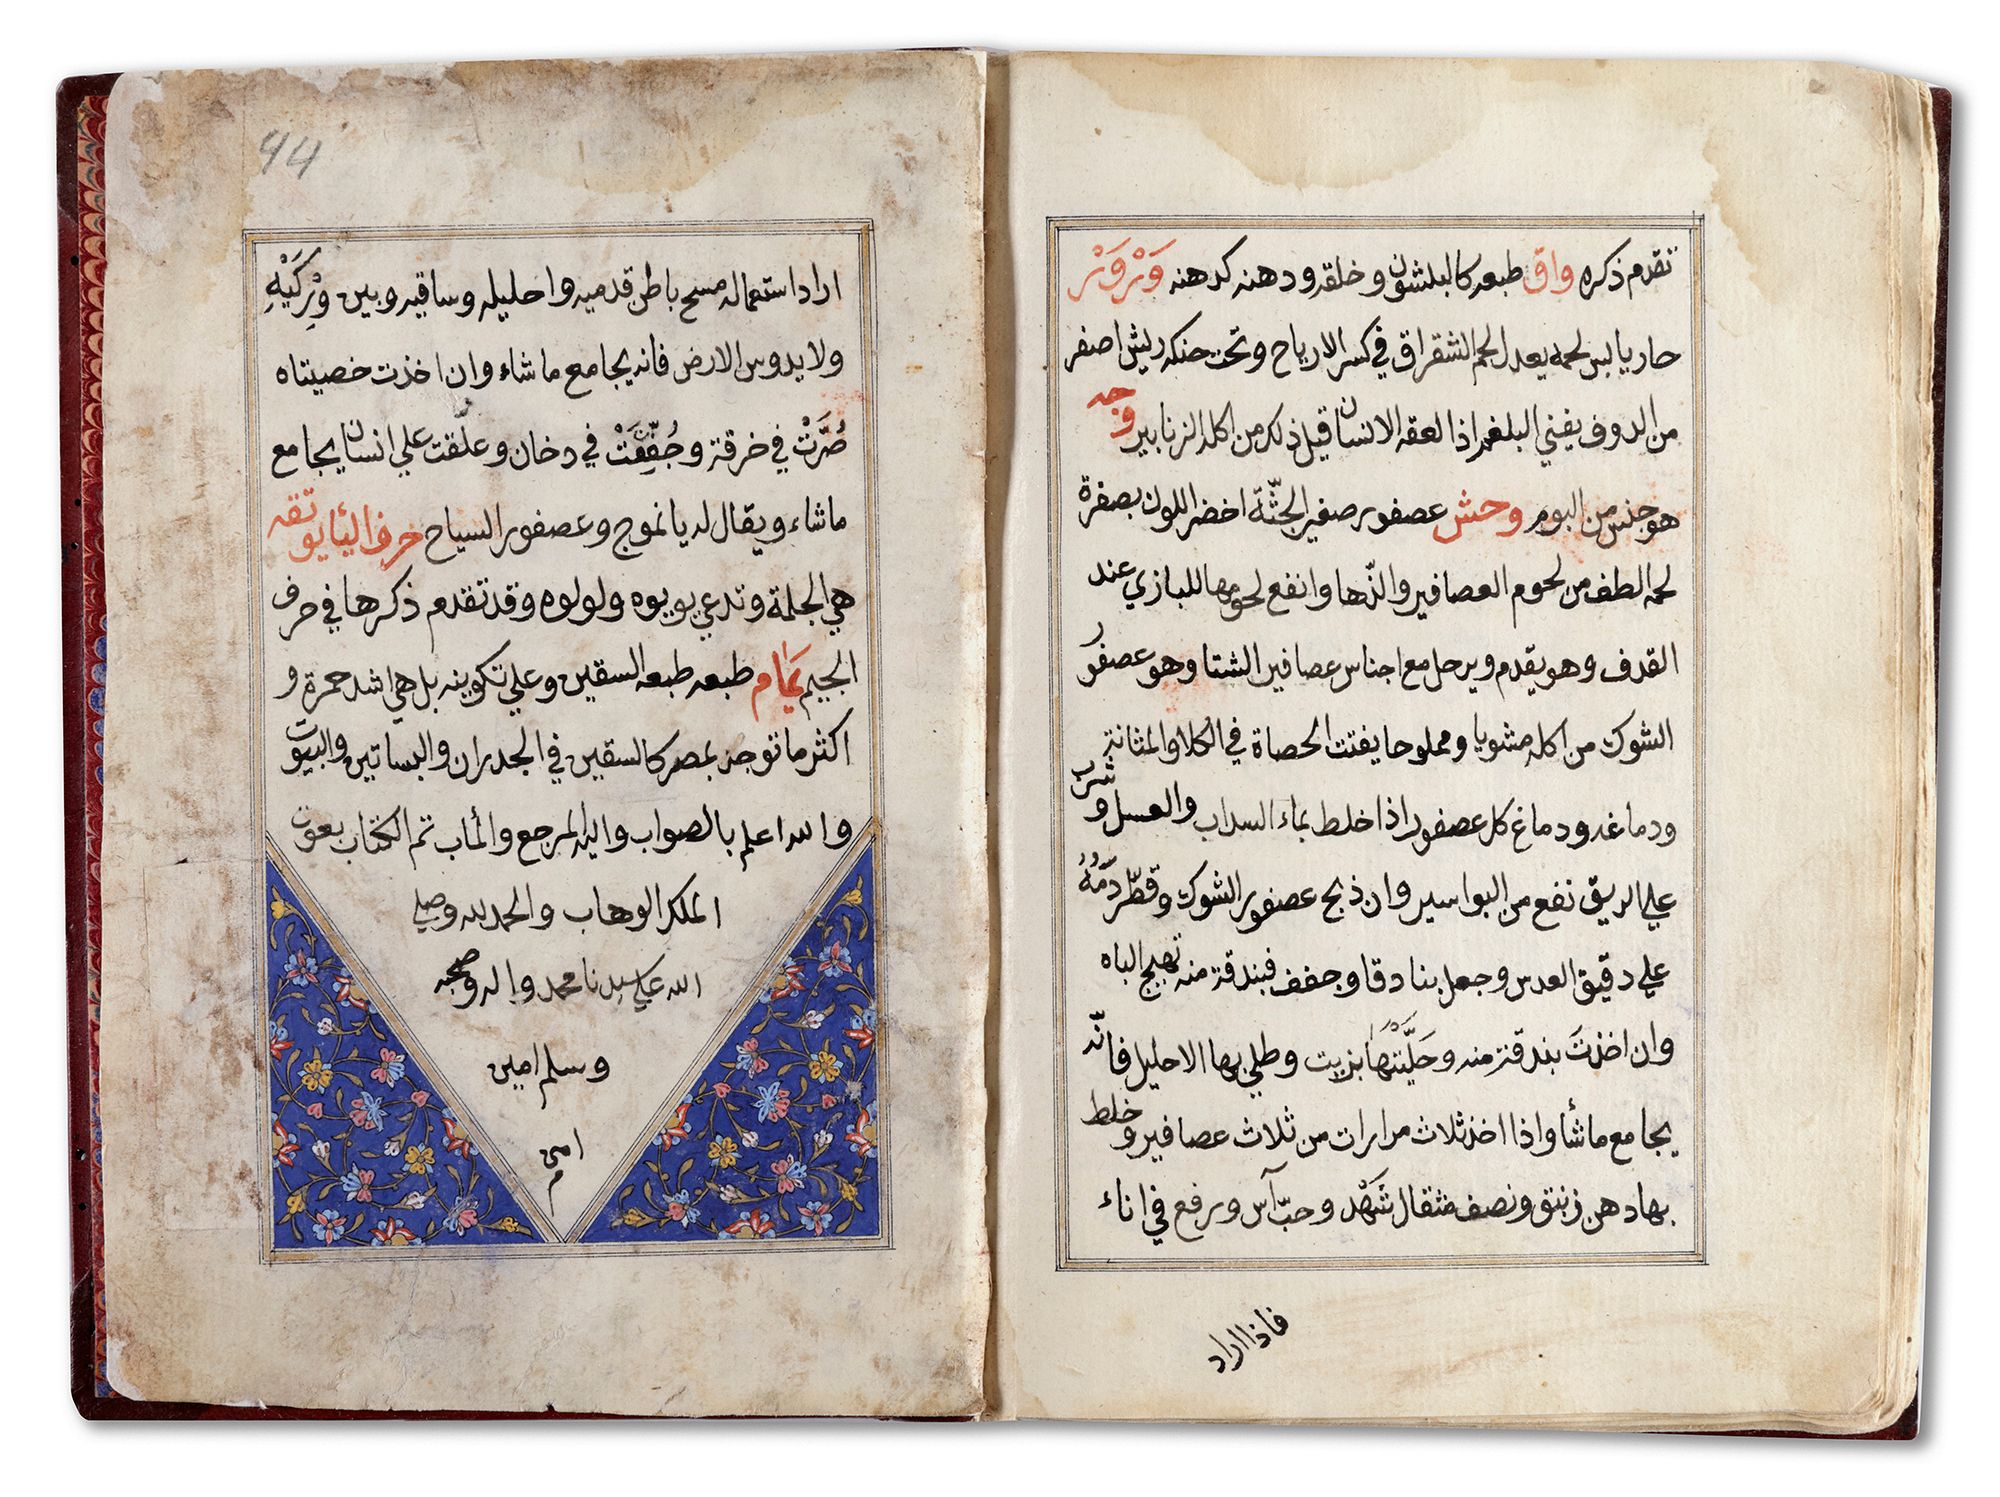 تقدم ذكره واق طبعه كالبلشون وخلقه ودهنه كدهنه وَرْوَرْ
حار يابس لحمه يعدل لحم الشقراق في كسر الارياح وتحت حنكه ريش اصفر
من الدوف يفني البلغم اذا لعقه الانسان قيل ذلك من اكله الزنابير وجه
هو جنس من البوم وحش عصفور صغير الجثّة اخضر اللون بصفرة
لحمه الطف من لحوم العصافير والذّها وانفع لحومها للبازي عند
القدف وهو يقدم ويرحل مع اجناس عصافير الشتا وهو عصفور
الشوك من اكله مشويا ومملوحا يفتت الحصاة في الكلا والمثانة
ودماغه ودماغ كل عصفور اذا خلط بماء السداب والعسل وشرب
علي الريق نفع من البواسير وان ذبح عصفور الشوك وقطّر دَمُهُ
علي دقيق العدس وجعل بنادقا وجفف فبندقة منه تهيج الباه
وان اخذتَ بندقة منه وحَلَّيْتَها بزيت وطلي بها الاحليل فانّه
يجامع ماشأ واذا اخذ ثلاث مرارات من ثلاث عصافير وخلط
بها دهن زنبق ونصف مثقال شَهْد وحبّ آس ورفع في اناء
فاذا اراد
44
اراد استعماله مسح باطن قدميه واحليله وساقيه وبين وَرِكَيْهِ
ولا يدوس الارض فانه يجامع ما شاء وان اخذت خصيتاه
صُرَّتْ في خرقة وجُفِّفَتْ في دخان وعلقت علي انسان يجامع
ما شاء ويقال له يانموج وعصفور السياح حرف اليا يوتقه
هي الجلمة وتدعي بويوه ولولوه وقد تقدم ذكرها في حرف
الجيم يَمام طبعه طبعه السقين وعلي تكوينه بل هي اشد حمرة و
اكثر ما توجد بمصر كالسقين في الجدران والبساتين والبيوت
والله اعلم بالصواب واليه المرجع والمأب تم الكتاب بعون
الملك الوهاب والحمد لله وصلي
الله علي سيدنا محمد واله وصحبه
وسلم امين
امين
م